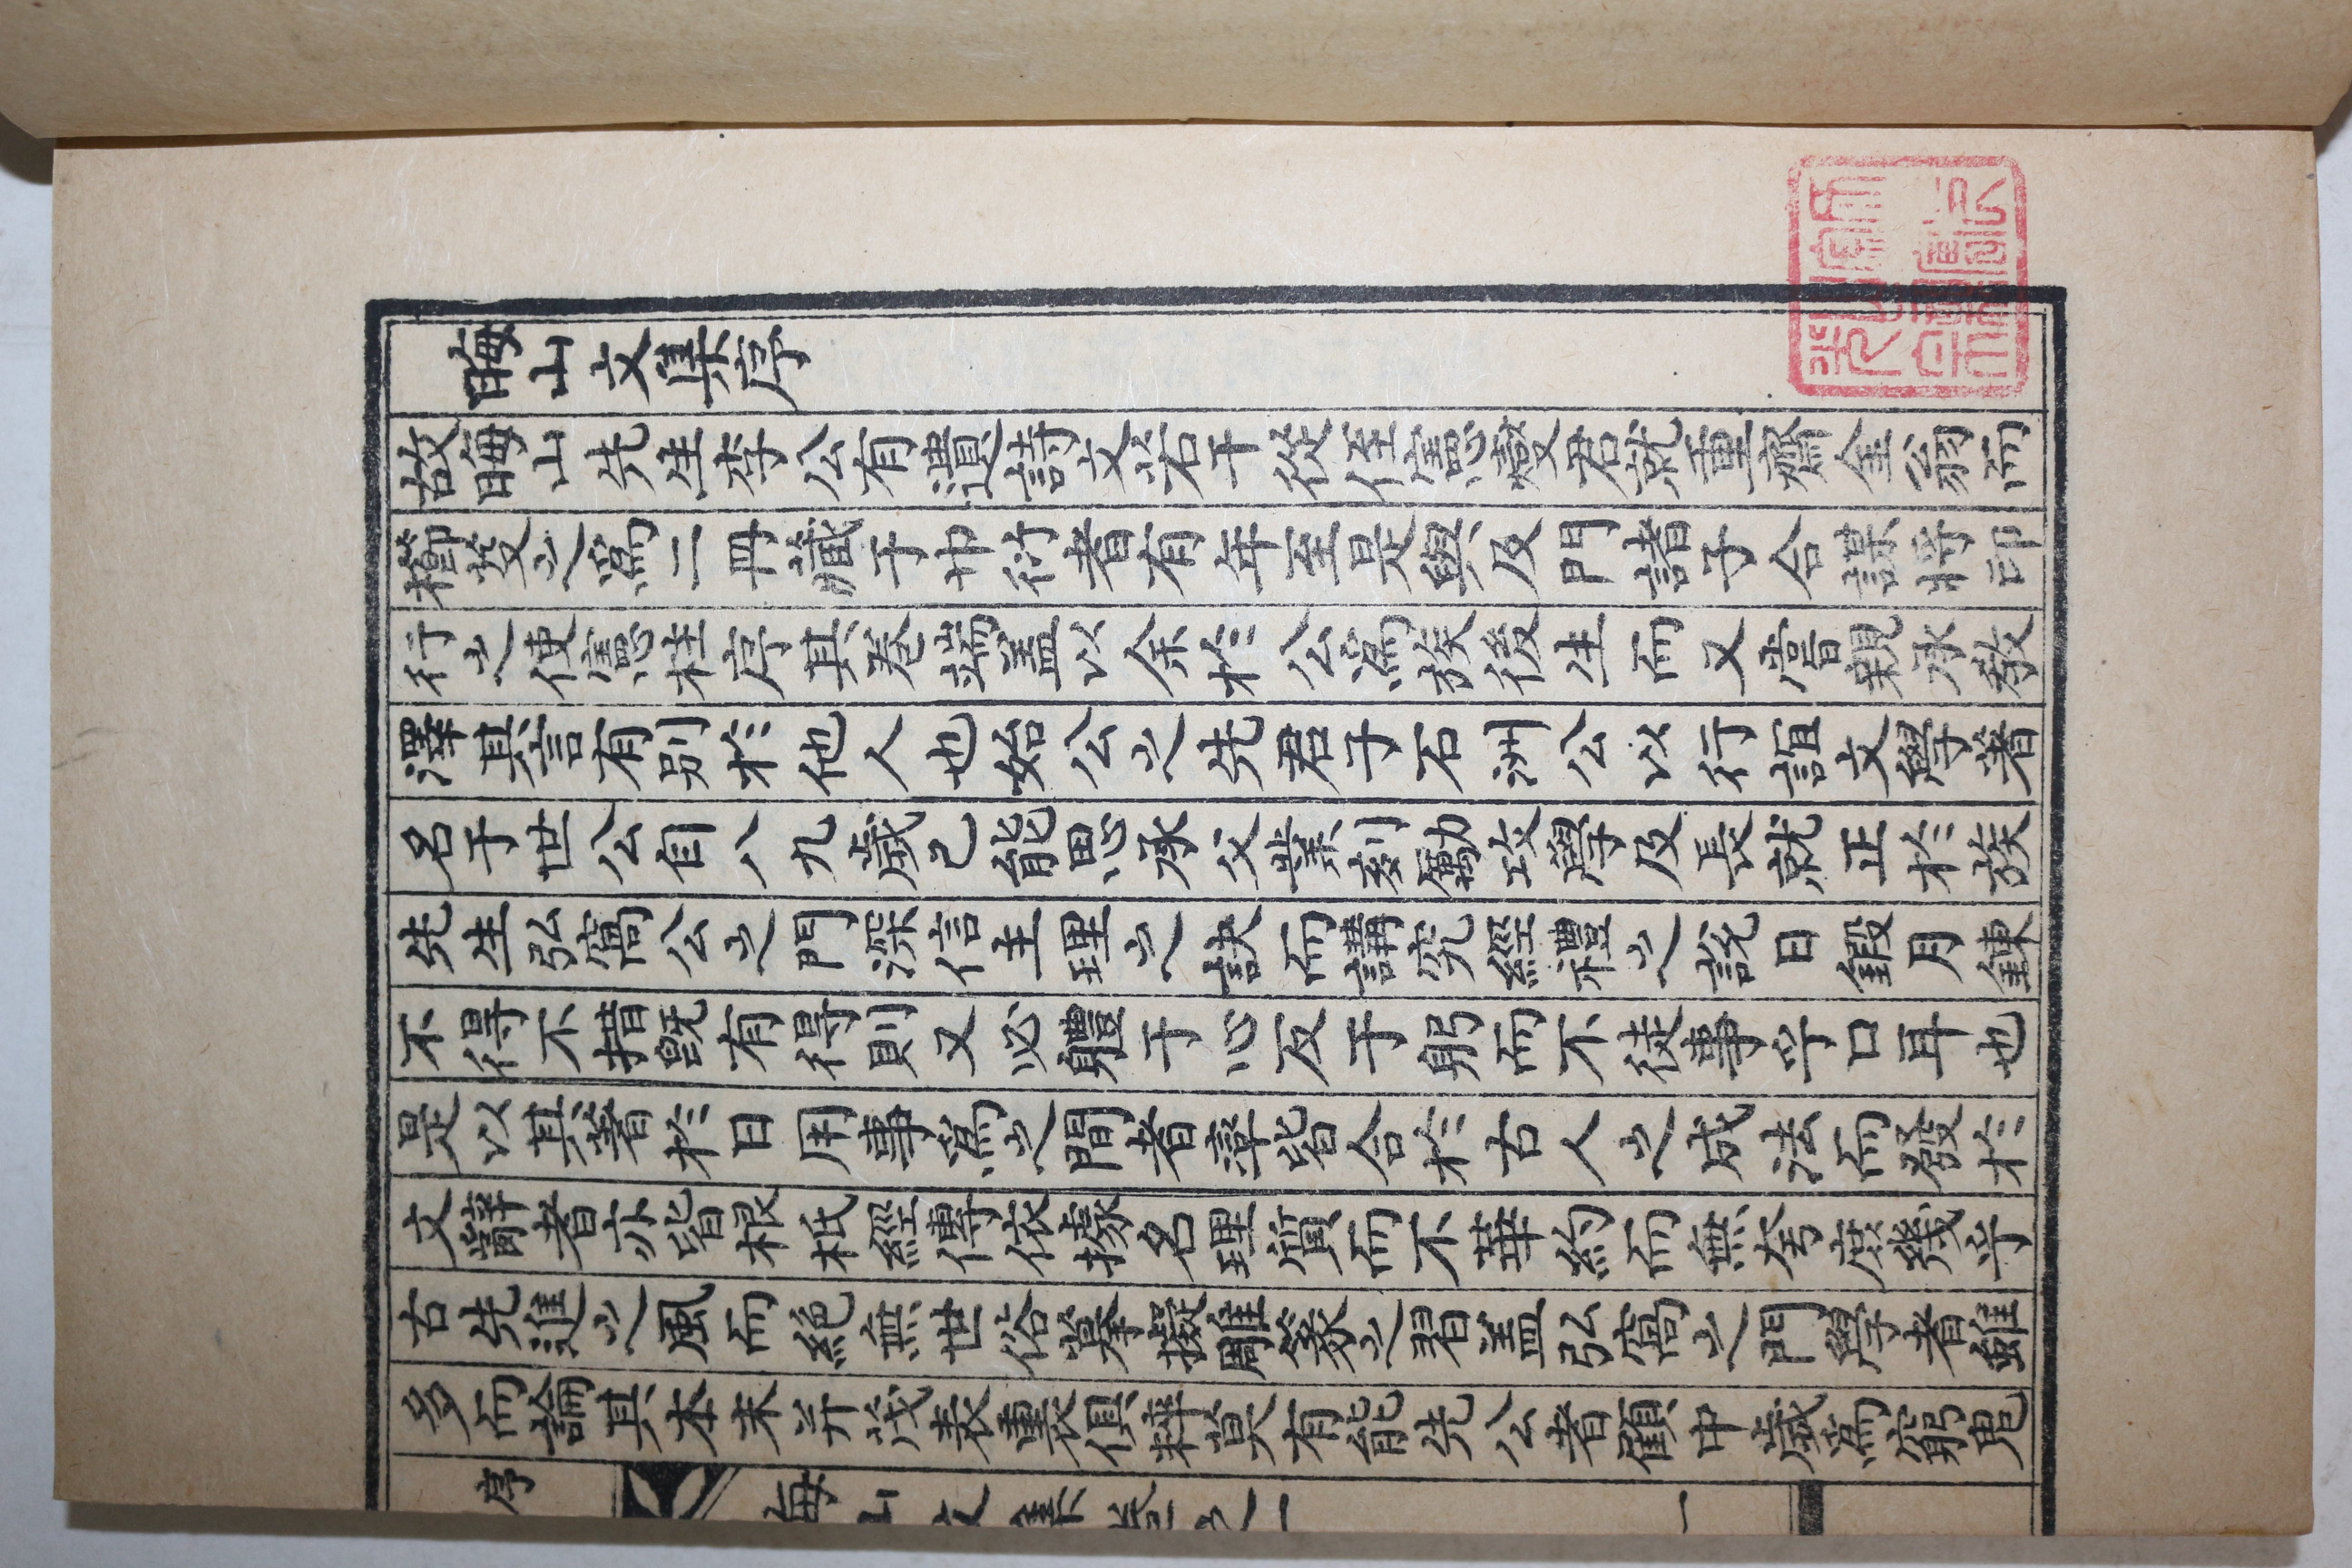 晦山文集序
故晦山先生李公有遺詩文若干從侄憲燮君就重齋金翁而
櫛芟之爲二冊藏于巾衍者有年至是與及門諸子合謀將印
行之使憲柱序其卷端盖以余於公爲族後生而又嘗親承敎
澤其言有別於他人也始公之先君子石洲公以行誼文學著
名于世公自八九歲已能思承父業刻勵攻學及長就正於族
先生弘窩公之門深信主理之訣而講究經禮之說日鍛月鍊
不得不措旣有得則又必軆于心反于躬而不徒事乎口耳也
是以其著於日用事爲之間者率皆合於古人之成法而發於
文辭者亦皆根柢經傳依據名理質而不華約而無夸庶幾乎
古先進之風而絶無世俗摹擬雕篆之習盖弘窩之門學者雖
多而論其本末并茂表裏俱粹莫有能先公者顧中歲爲窮鬼
序
晦山文集卷之一
一